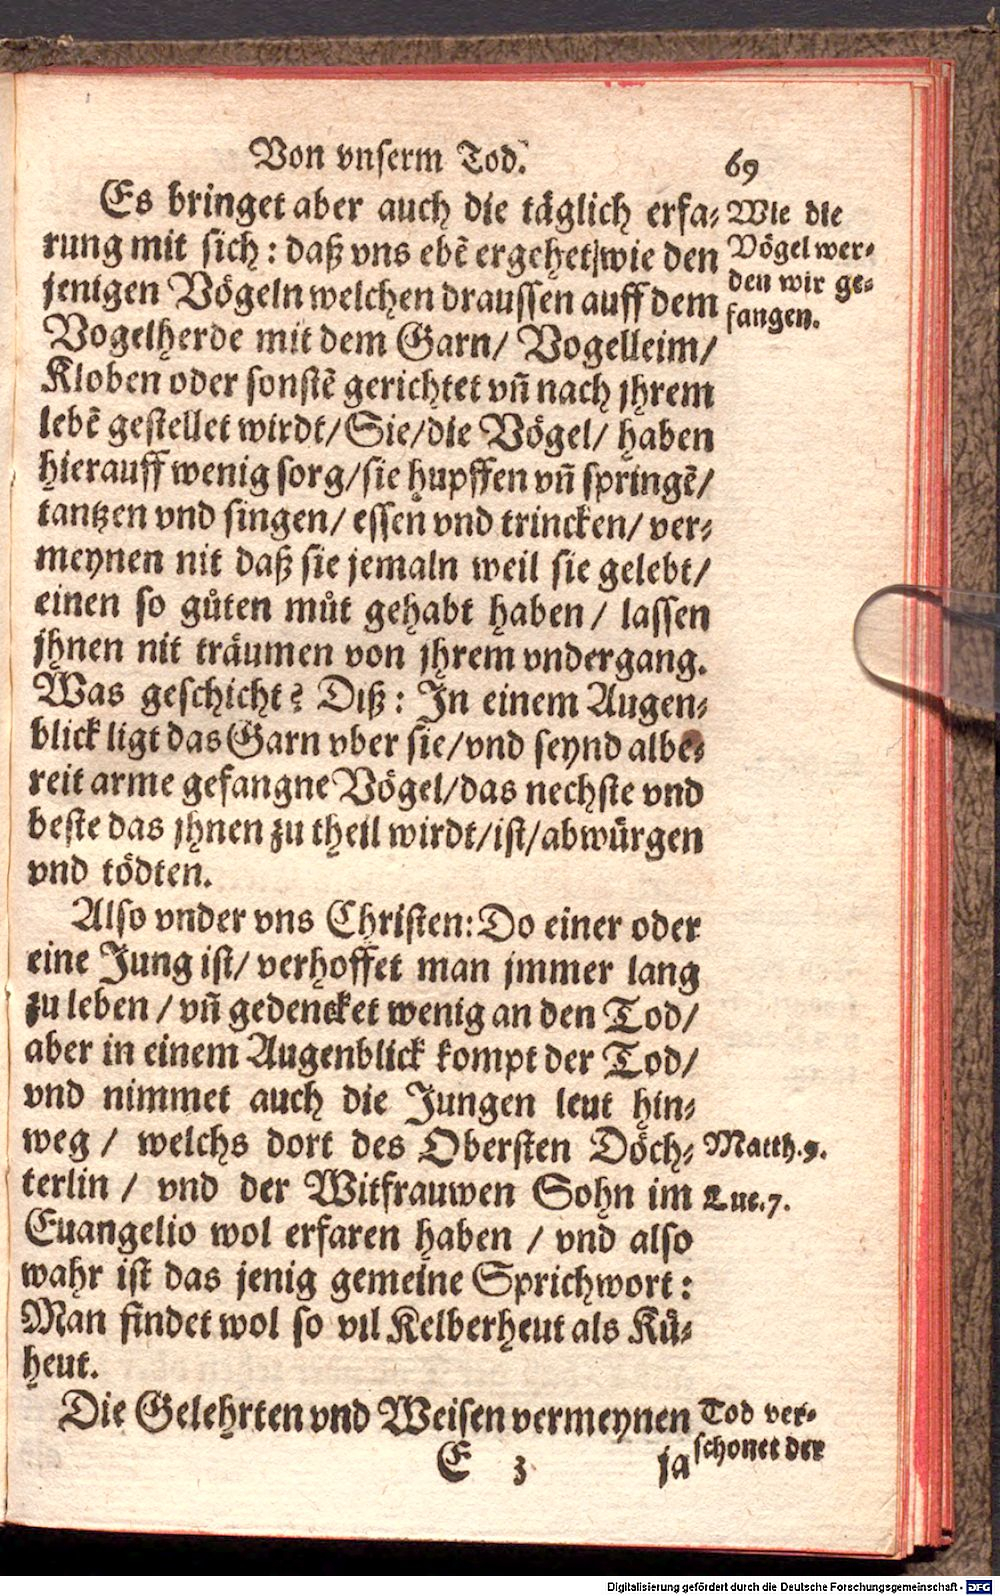 Von vnserm Tod. 69
Es bringet aber auch die täglich erfa-
rung mit sich: daß vns ebē ergehet/wie den
jenigen Vögeln welchen draussen auff dem
Vogelherde mit dem Garn/ Vogelleim/
Kloben oder sonstē gerichtet vñ nach jhrem
lebē gestellet wirdt/Sie/die Vögel/ haben
hierauff wenig sorg/sie hupffen vñ springē/
tantzen vnd singen/ essen vnd trincken/ ver-
meynen nit daß sie jemaln weil sie gelebt/
einen so gůten můt gehabt haben/ lassen
jhnen nit träumen von jhrem vndergang.
Was geschicht? Diß: In einem Augen-
blick ligt das Garn vber sie/vnd seynd albe-
reit arme gefangne Vögel/das nechste vnd
beste das jhnen zu theil wirdt/ist/abwürgen
vnd tödten.
Also vnder vns Christen: Do einer oder
eine Jung ist/ verhoffet man jmmer lang
zu leben / vñ gedencket wenig an den Tod/
aber in einem Augenblick kompt der Tod/
vnd nimmet auch die Jungen leut hin-
weg / welchs dort des Obersten Döch-
terlin / vnd der Witfrauwen Sohn im
Euangelio wol erfaren haben / vnd also
wahr ist das jenig gemeine Sprichwort:
Man findet wol so vil Kelberheut als Kü-
heut.
Die Gelehrten vnd Weisen vermeynen
E 3 ja
Wie die
Vögel wer-
den wir ge-
fangen.
Matth.9.
Luc.7.
Tod ver-
schonet der
Digitalisierung gefördert durch die Deutsche Forschungsgemeinschaft - DFG